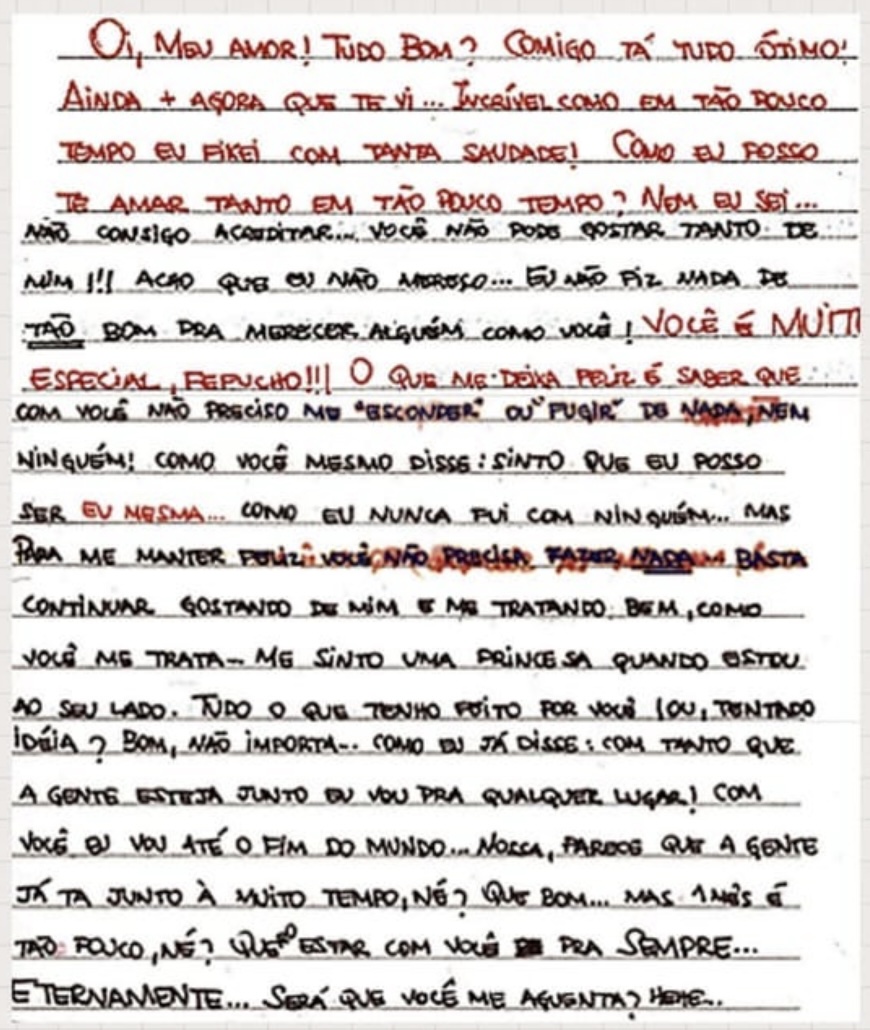 OI, MEU AMOR! TUDO BOM? COMIGO TÁ TUDO ÓTIMO!
AINDA + AGORA QUE TE VI... INCRÍVEL COMO EM TÃO POUCO
TEMPO EU FIKEI COM TANTA SAUDADE! COMO EU POSSO
TE AMAR TANTO EM TÃO POUCO TEMPO? NEM EU SEI...
NÃO CONSIGO ACREDITAR... VOCÊ NÃO PODE GOSTAR TANTO DE
MIM!!! ACHO QUE EU NÃO MEREÇO... EU NÃO FIZ NADA DE
TÃO BOM PRA MERECER ALGUÉM COMO VOCÊ! VOCÊ É MUITO
ESPECIAL, FEPUCHO!!! O QUE ME DEIXA FELIZ É SABER QUE
COM VOCÊ NÃO PRECISO ME "ESCONDER" OU "FUGIR" DE NADA, NEM
NINGUÉM! COMO VOCÊ MESMO DISSE: SINTO QUE EU POSSO
SER EU MESMA... COMO EU NUNCA FUI COM NINGUÉM... MAS
PARA ME MANTER FELIZ VOCÊ NÃO PRECISA FAZER NADA BASTA
CONTINUAR GOSTANDO DE MIM E ME TRATANDO BEM, COMO
VOCÊ ME TRATA... ME SINTO UMA PRINCESA QUANDO ESTOU
AO SEU LADO. TUDO O QUE TENHO FEITO POR VOCÊ (OU, TENTADO
IDÉIA? BOM, NÃO IMPORTA... COMO EU JÁ DISSE: COM TANTO QUE
A GENTE ESTEJA JUNTO EU VOU PRA QUALQUER LUGAR! COM
VOCÊ EU VOU ATÉ O FIM DO MUNDO... NOSSA, PARECE QUE A GENTE
JÁ TA JUNTO À MUITO TEMPO, NÉ? QUE BOM... MAS 1 MÊS É
TÃO POUCO, NÉ? QUERO ESTAR COM VOCÊ PRA SEMPRE...
ETERNAMENTE... SERÁ QUE VOCÊ ME AGUENTA? HEHE...